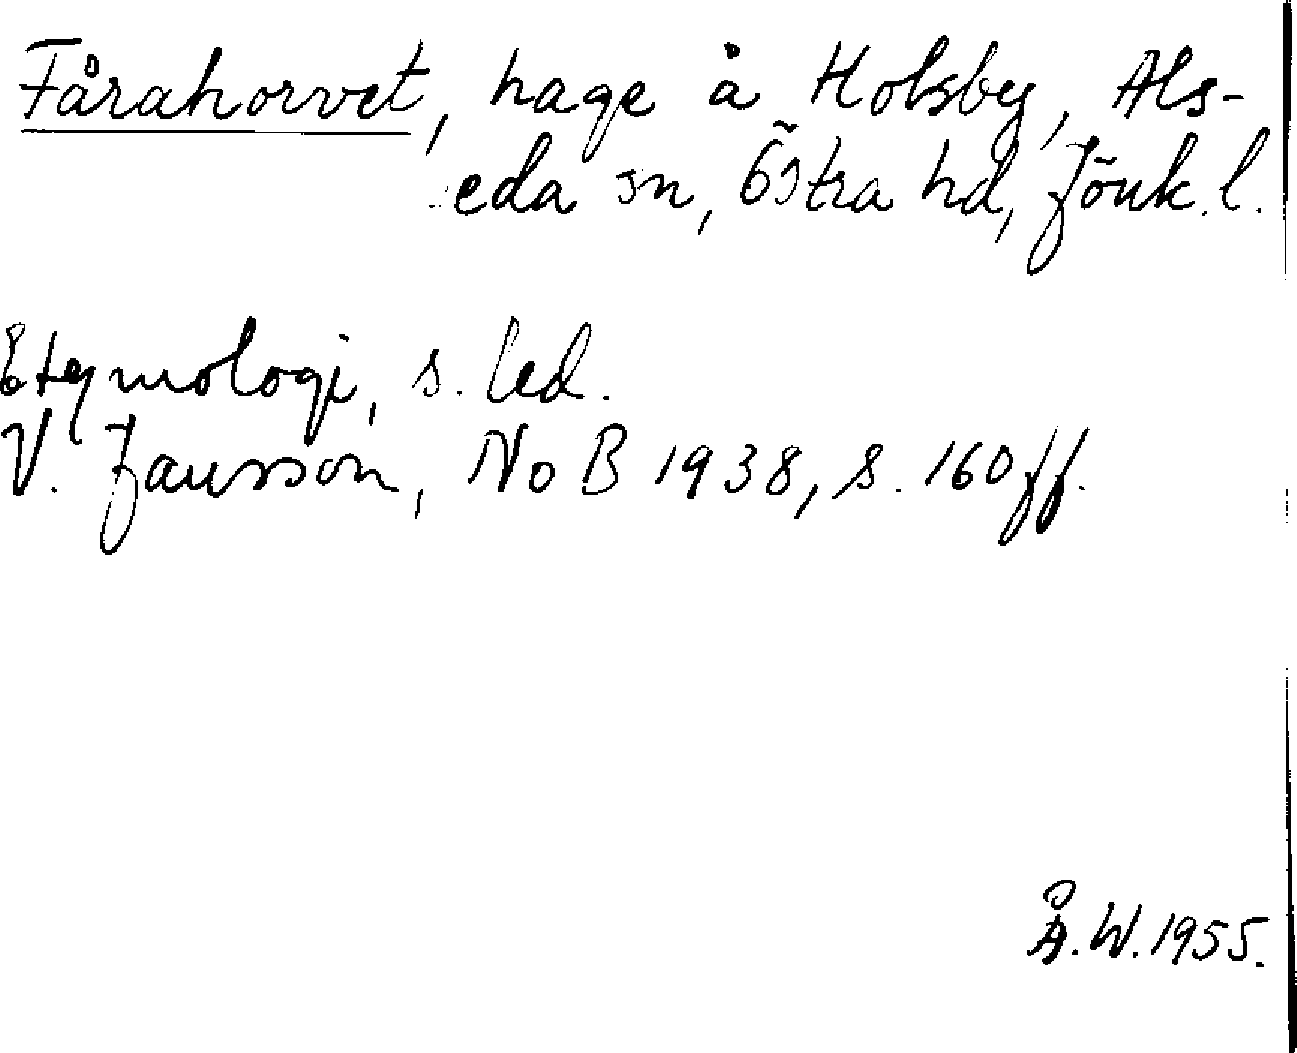 Fårahorvet, hage å Holsby, Als-
eda sn, Östra hd, Jönk. l.
Etymologi, s. led.
V. Jansson, NoB 1938, s. 160 ff.
Å. W. 1955.